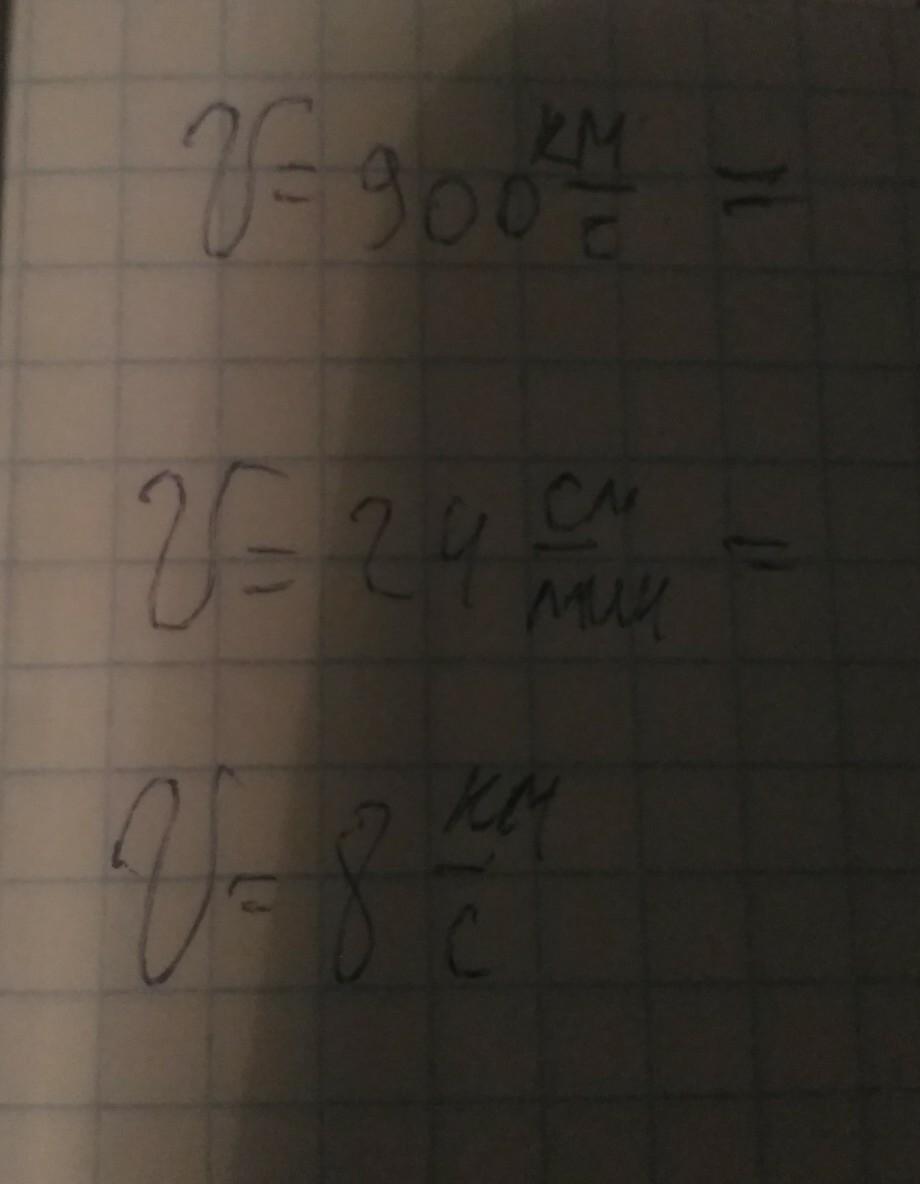 V = 900 км/с =
V = 24 см/мин =
V = 8 км/с